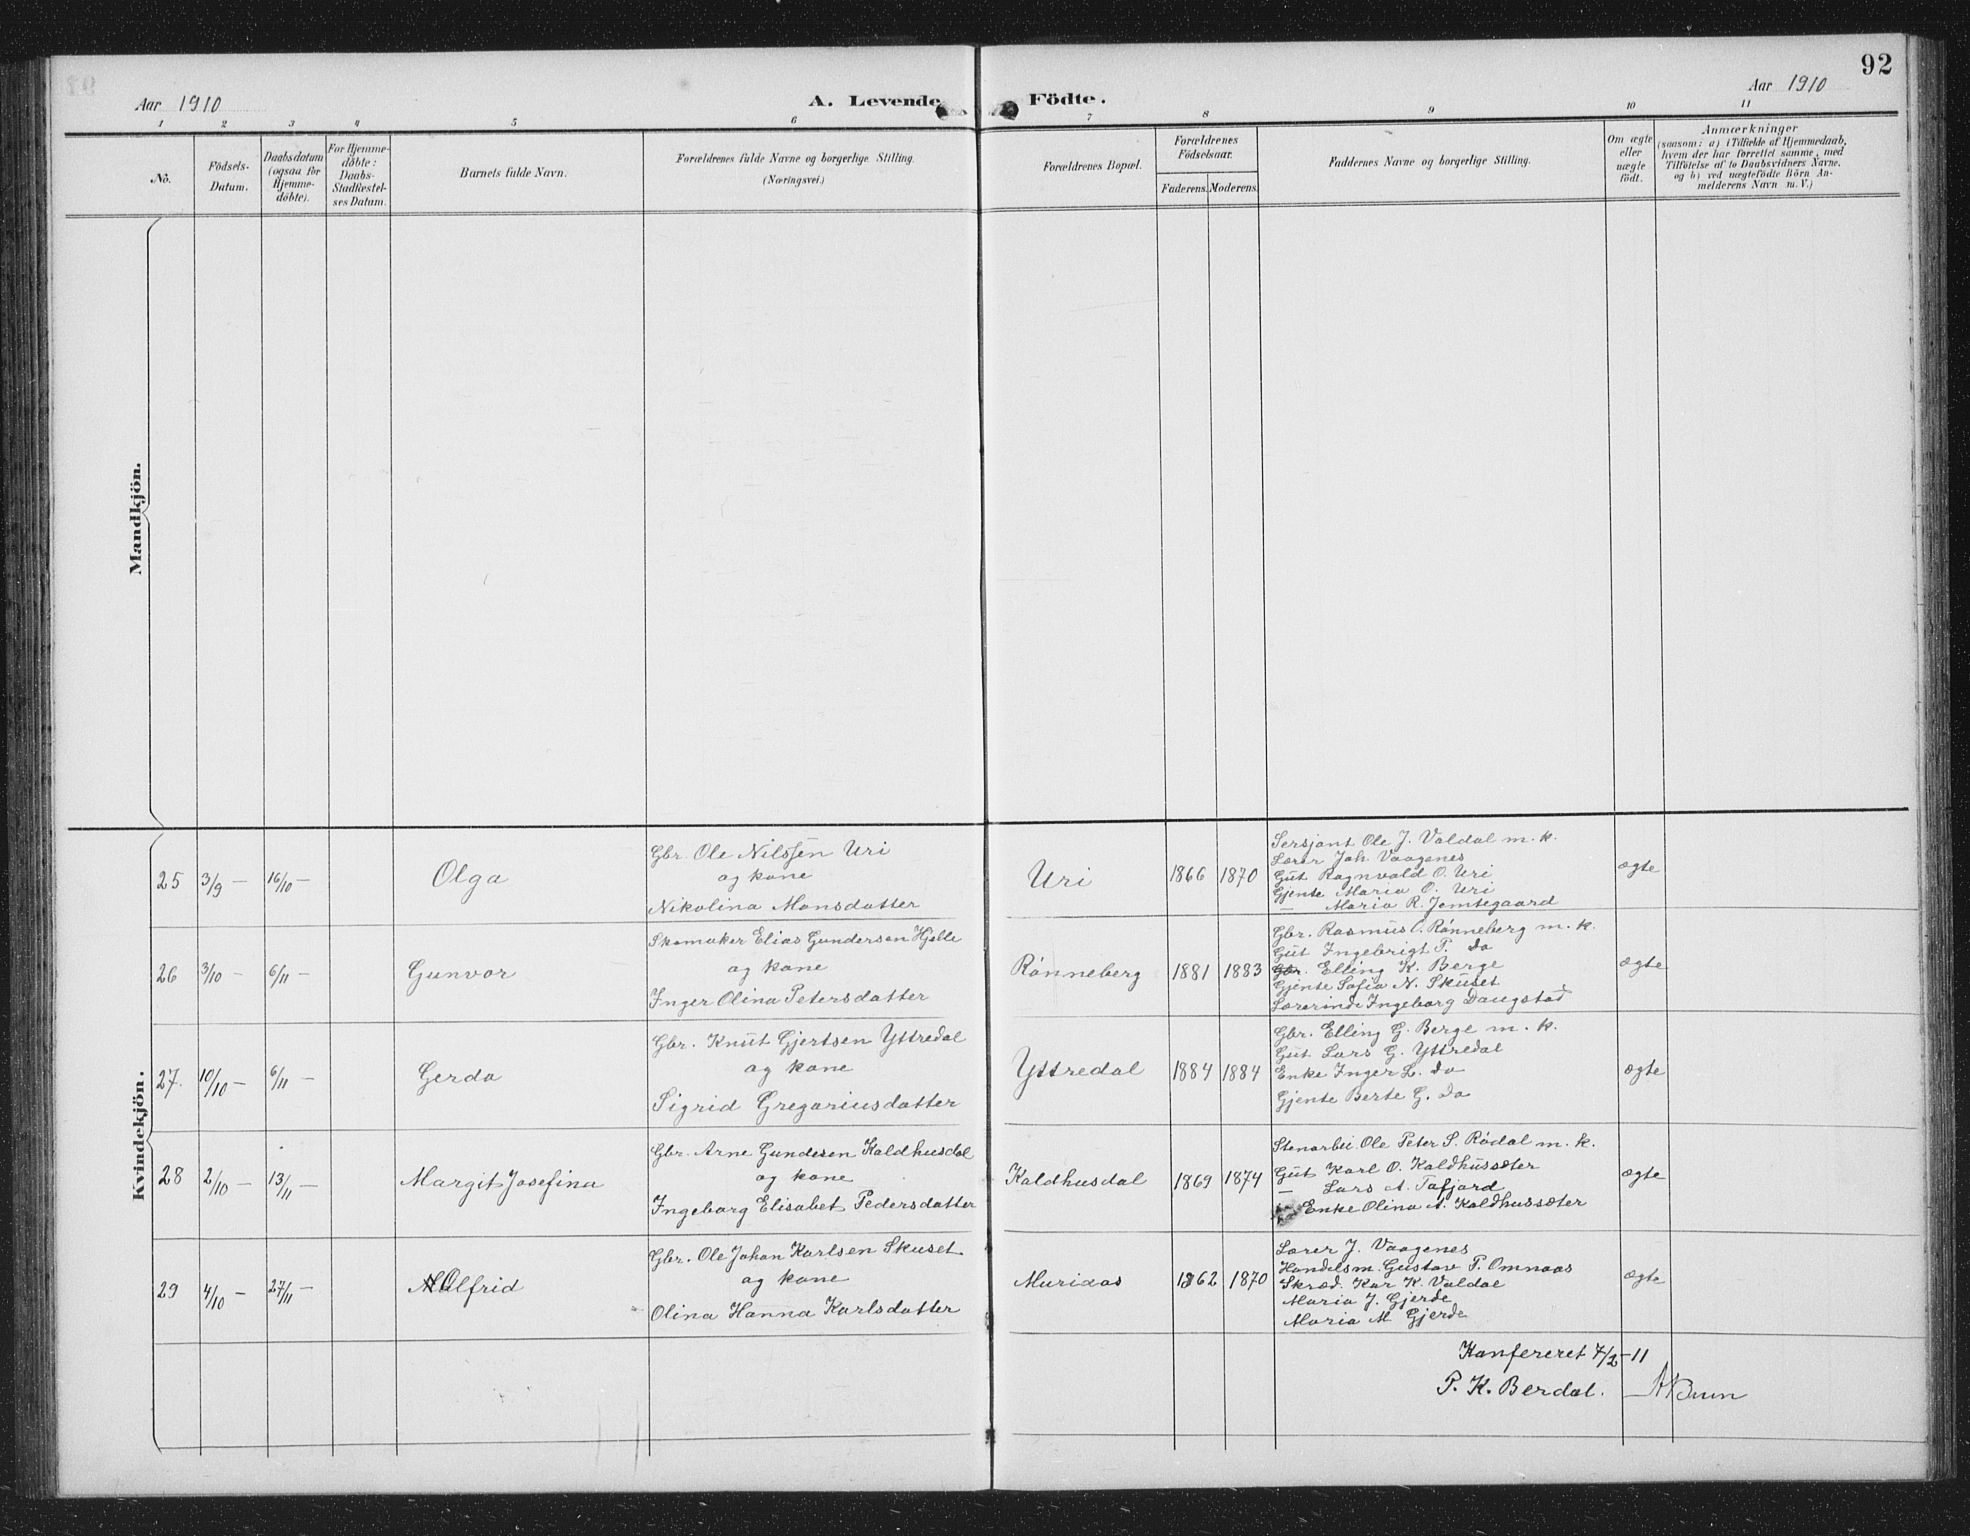 92
Aar 1910
A. Levende Födte.
Aar 1910
1 2 3 4 5 6 7 8 9 10 11
No.
Födsels-
Datum.
Daabsdatum
(ogsaa for
Hjemme-
döbte).
For Hjemme-
döbte:
Daabs-
Stadfæstel-
ses Datum.
Barnets fulde Navn.
Forældrenes fulde Navne og borgerlige Stilling.
(Næringsvei.)
Forældrenes Bopæl.
Forældrenes
Födselsaar.
Faderens. Moderens.
Faddernes Navne og borgerlige Stilling.
Om ægte
eller
uægte
födt.
Anmærkninger
(saasom: a) i Tilfælde af Hjemmedaab,
hvem der har forrettet samme, med
Tilföielse af to Daabsvidners Navne.
og b) ved uægtefödte Börn An-
melderens Navn m. V.)
Mandkjön.
Kvindekjön.
25 3/9 — 16/10 —
Olga
Gbr. Ole Nilssen Uri
og kone
Nikolina Monsdatter
Uri
1866 1870
Sersjant Ole J. Valdal m. k.
Lærer Joh. Vaagenes
Gut Ragnvald O. Uri
Gjente Maria O. Uri
— Maria R. Jemtegaard
ægte
26 3/10 — 6/11 —
Gunvor
Skomaker Elias Gundersen Hjelle
og kone
Inger Olina Petersdatter
Rønneberg
1881 1883
Gbr. Rasmus O. Rønneberg m. k.
Gut Ingebrigt P. do
Gbr. Elling K. Berge
Gjente Sofia N. Skuset
Lærerinde Ingeborg Daugstad
ægte
27. 10/10 — 6/11 —
Gerda
Gbr. Knut Gjertsen Yttredal
og kone
Sigrid Gregoriusdatter
Yttredal
1884 1884
Gbr. Elling G. Berge m. k.
Gut Lars G. Yttredal
Enke Inger L. do
Gjente Berte G. do
ægte
28 2/10 — 13/11 —
Margit Josefina
Gbr. Arne Gundesen Kaldhusdal
og kone
Ingeborg Elisabet Pedersdatter
Kaldhusdal
1869 1874
Stenarbei. Ole Peter S. Rødal m. k.
Gut Karl O. Kaldhussæter
— Lars A. Tafjord
Enke Olina A. Kaldhussæter
ægte
29 4/10 — 27/11 —
Alfrid
Gbr. Ole Johan Karlsen Skuset
og kone
Olina Hanna Karlsdatter
Muriaas
1862 1870
Lærer J. Vaagenes
Handelsm. Gustav P. Omnaas
Skræd. Kar K. Valdal
Maria J. Gjerde
Maria M Gjerde
ægte
Konfereret 7/2-11
P. K. Berdal. A Brun